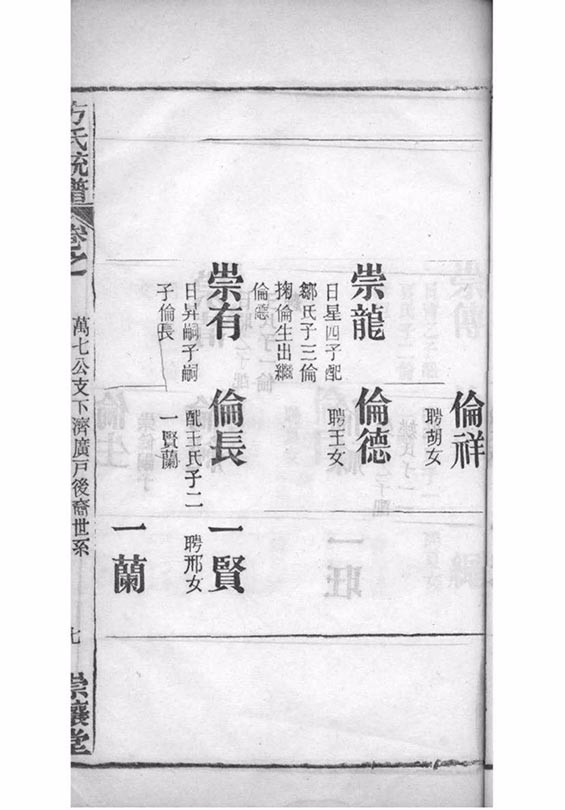 倫祥
聘胡女
崇龍
日星四子配
鄒氏子三倫
掬倫生出繼
倫德
倫德
聘王女
崇有
日昇嗣子嗣
子倫長
倫長
配王氏子二
一賢蘭
一賢
聘邢女
一蘭
方氏統譜
卷之一
萬七公支下濟廣戶後裔世系
七
崇讓堂